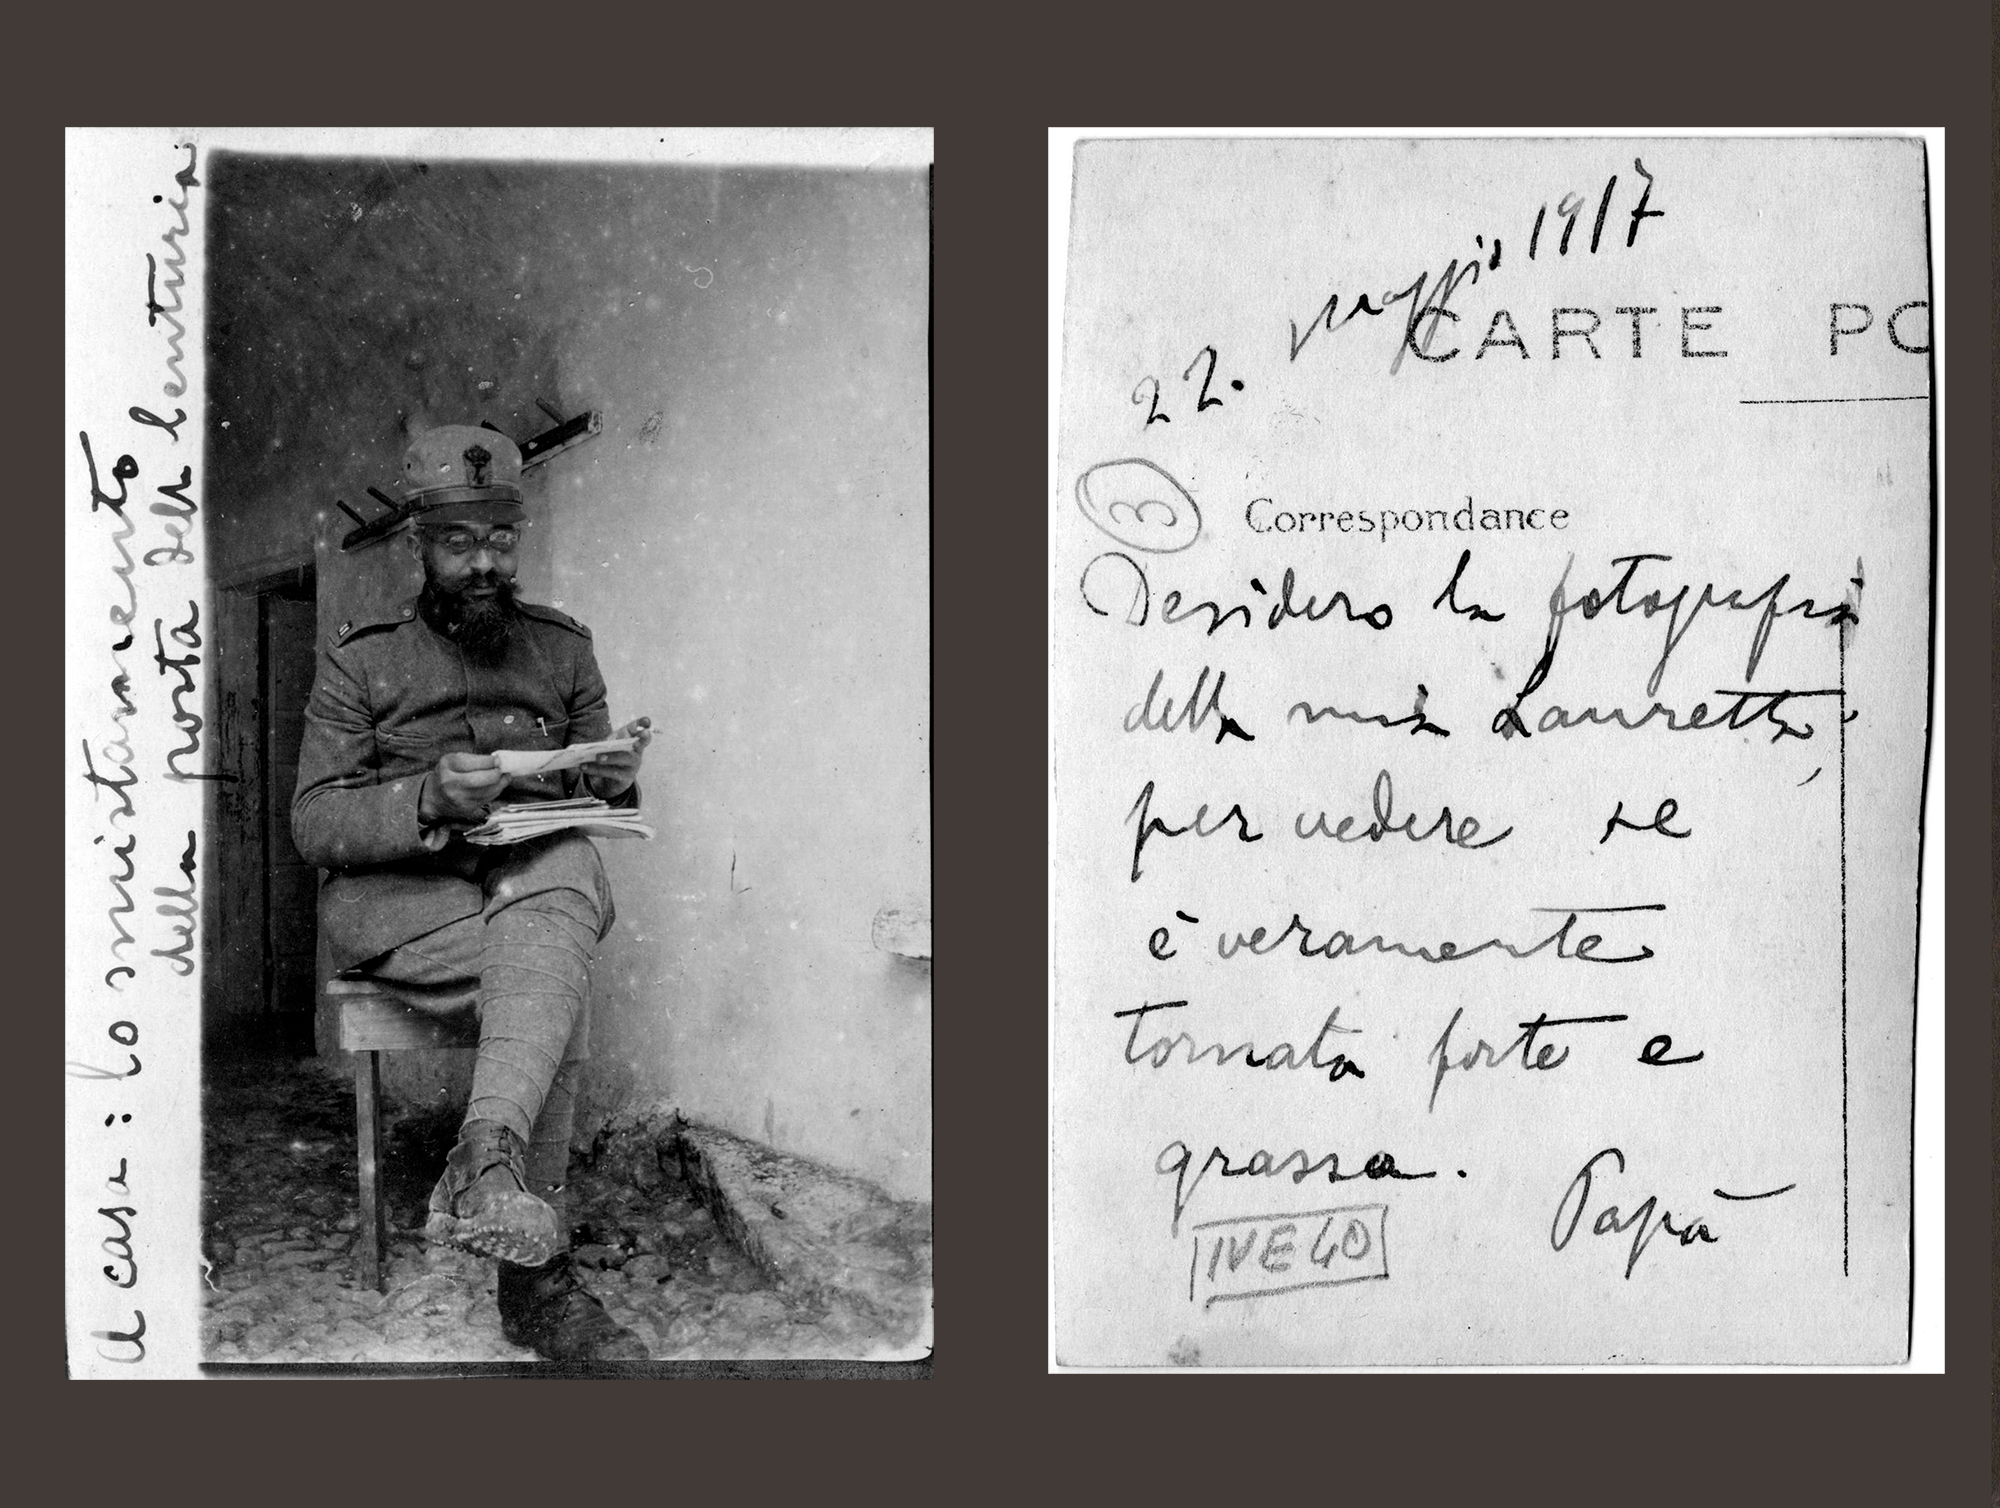 A casa: lo smistamento
della posta della Centuria
22. maggio 1917
CARTE PO
3
Correspondance
Desidero la fotografia
della mia Lauretta,
per vedere se
è veramente
tornata forte e
grassa.
Papà
IVE 40